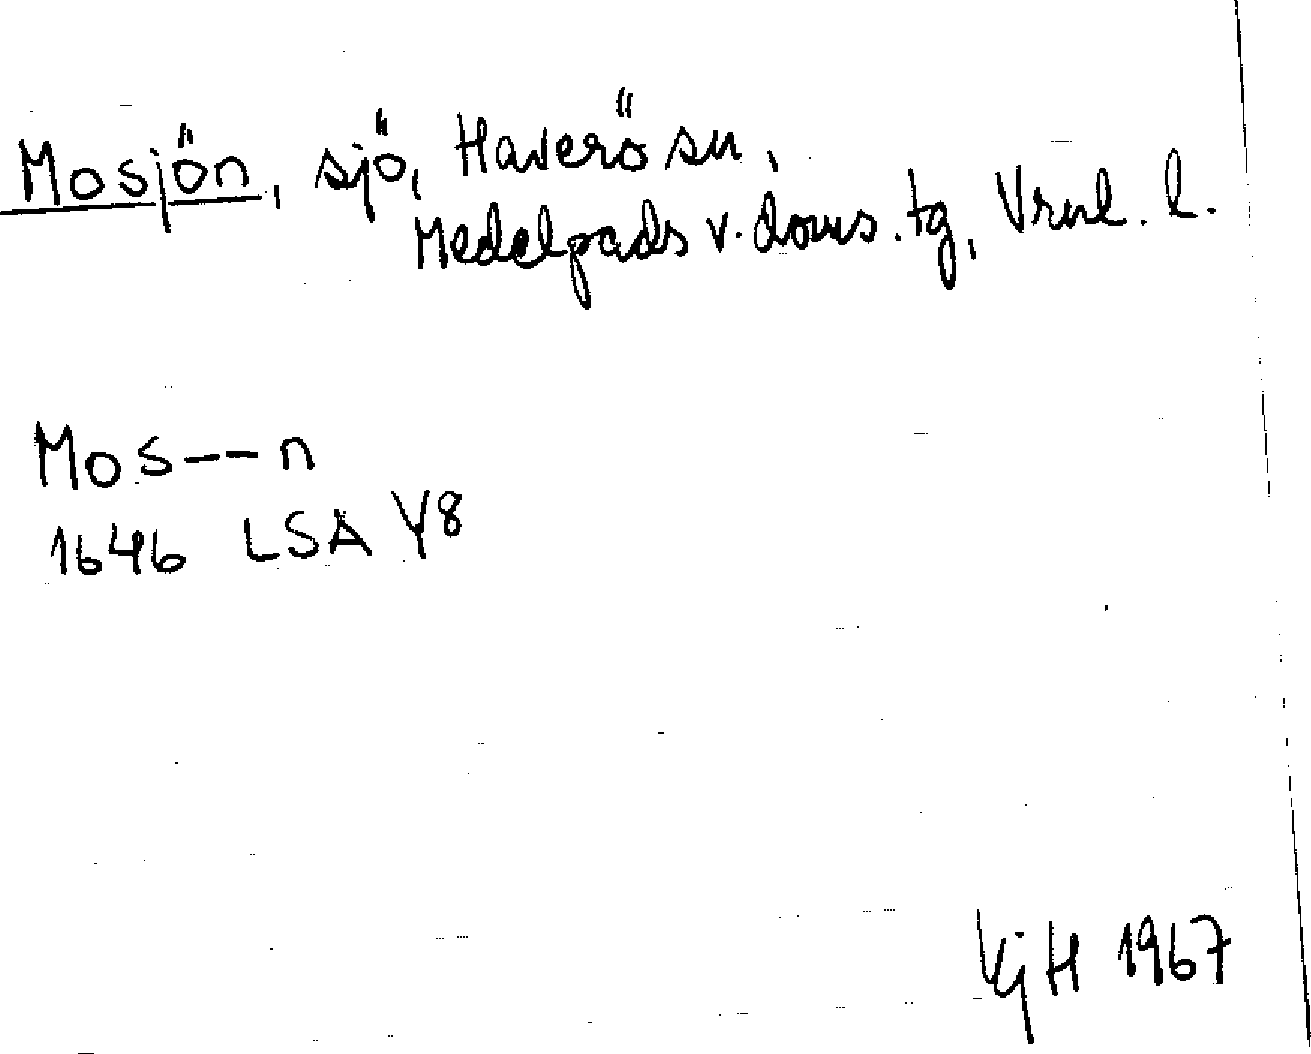 Mosjön, sjö, Haverö sn,
Medelpads v. doms. tg, Vrnl. l.
Mos---n
1646 LSA Y8
KjH 1967